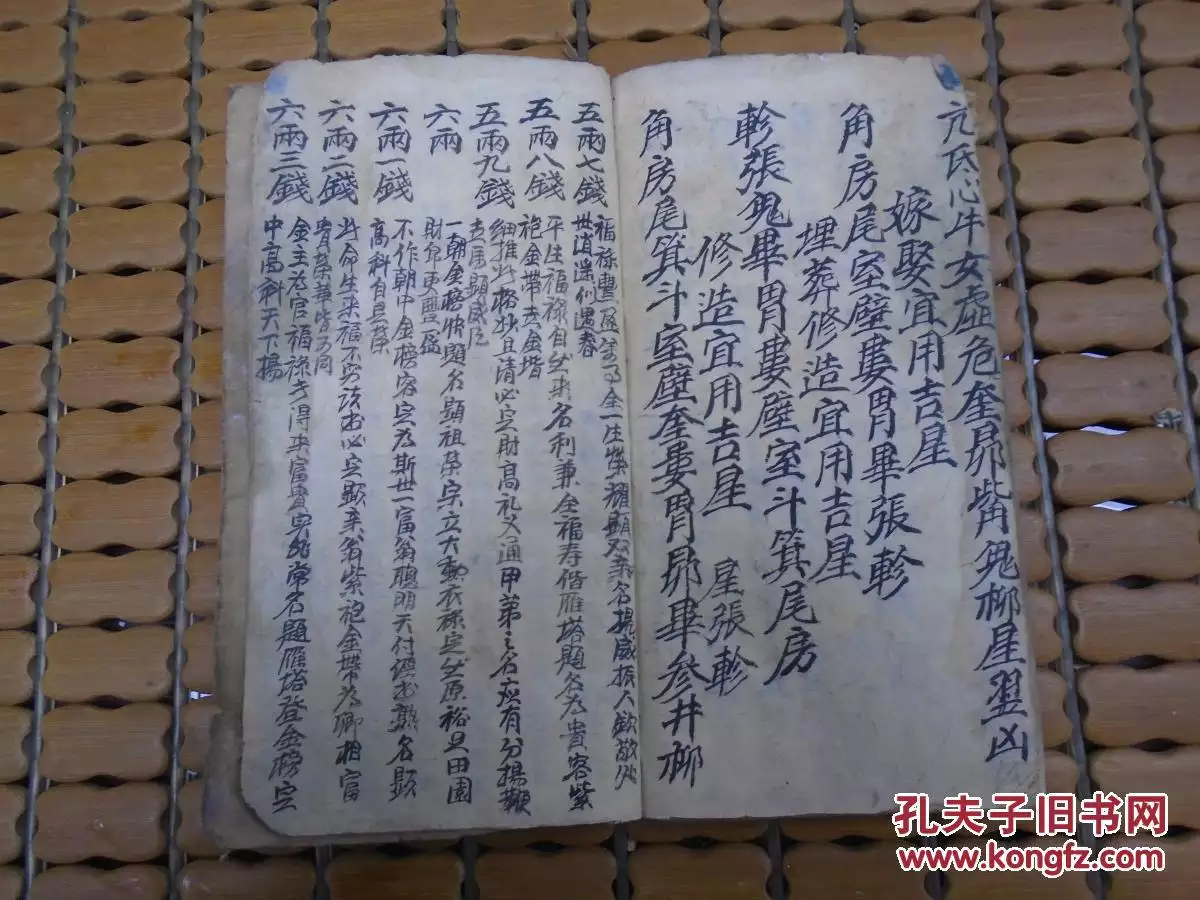 亢氐心牛女虛危奎昴觜角鬼柳星翌凶
嫁娶宜用吉星
角房尾室壁婁胃畢張軫
埋葬修造宜用吉星
軫張鬼畢胃婁壁室斗箕尾房
修造宜用吉星 星張軫
角房尾箕斗室壁奎婁胃昴畢參井柳
五兩七錢 福祿豐盈萬事全一生榮耀顯双亲名揚威振人欽敬处
世逍遥似遇春
五兩八錢 平生福祿自然來名利兼全福寿偕雁塔題名為貴客紫
袍金帶走金堦
五兩九錢 細推此格妙且清必定財高礼义通甲第之名应有分揚鞭
走馬顯威
六兩 一朝金榜快題名顯祖荣宗立大勳衣祿定然原裕足田園
財帛更豐盈
六兩一錢 不作朝中金榜客定為斯世一富翁聰明天付經书熟名顯
高科自是荣
六兩二錢 此命生来福不穷读书必定顯亲翁紫袍金帶为卿相富
貴荣華皆同
六兩三錢 金主为官福祿得来富貴非常名題雁塔登金榜定
中高科天下揚
孔夫子旧书网
www.kongfz.com